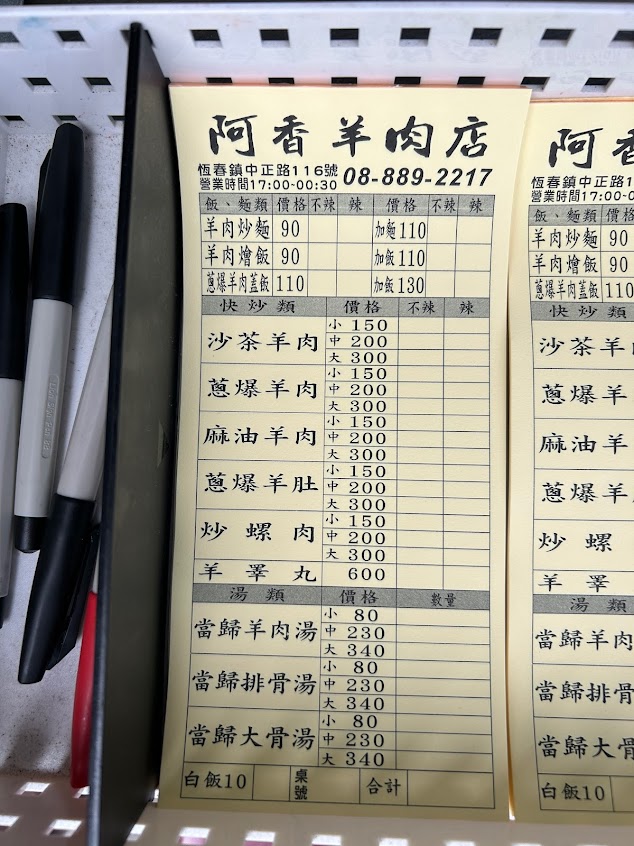 阿香羊肉店
恆春鎮中正路116號
營業時間17:00~00:30
08-889-2217
飯、麵類 價格 不辣 辣 價格 不辣 辣
羊肉炒麵 90 加麵110
羊肉燴飯 90 加飯110
蔥爆羊肉蓋飯 110 加飯130
快炒類 價格 不辣 辣
沙茶羊肉 小 150
中 200
大 300
蔥爆羊肉 小 150
中 200
大 300
麻油羊肉 小 150
中 200
大 300
蔥爆羊肚 小 150
中 200
大 300
炒螺肉 小 150
中 200
大 300
羊睪丸 600
湯類 價格 數量
當歸羊肉湯 小 80
中 230
大 340
當歸排骨湯 小 80
中 230
大 340
當歸大骨湯 小 80
中 230
大 340
白飯10 桌號 合計
阿香
恆春鎮中正路11
營業時間17:00~0
飯、麵類 價格
羊肉炒麵 90
羊肉燴飯 90
蔥爆羊肉蓋飯 110
快炒類
沙茶羊
蔥爆羊
麻油羊
蔥爆羊
炒螺
羊睪
湯類
當歸羊肉
當歸排骨
當歸大骨
白飯10